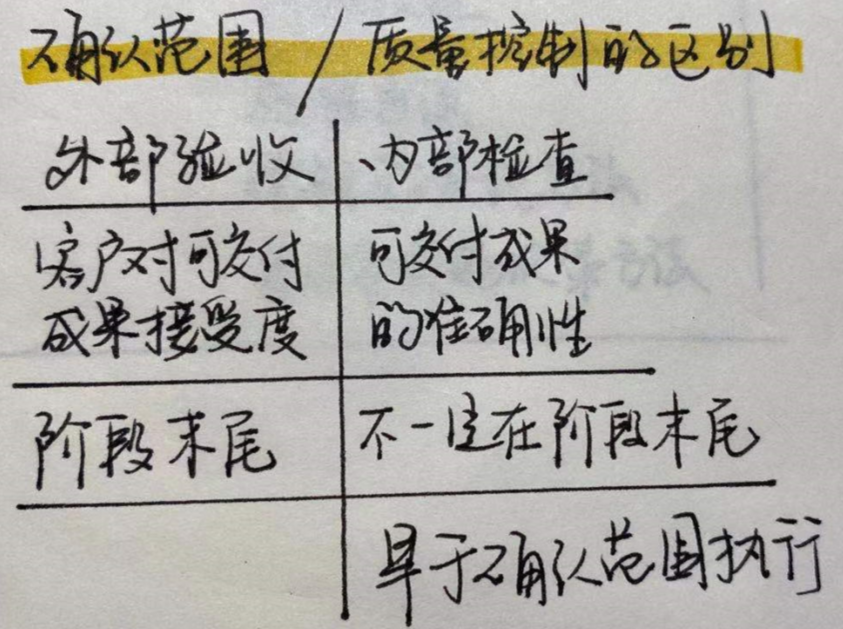 确认范围 / 质量控制的区别
外部验收 内部检查
客户对可交付 可交付成果
成果接受度 的准确性
阶段末尾 不一定在阶段末尾
早于确认范围执行